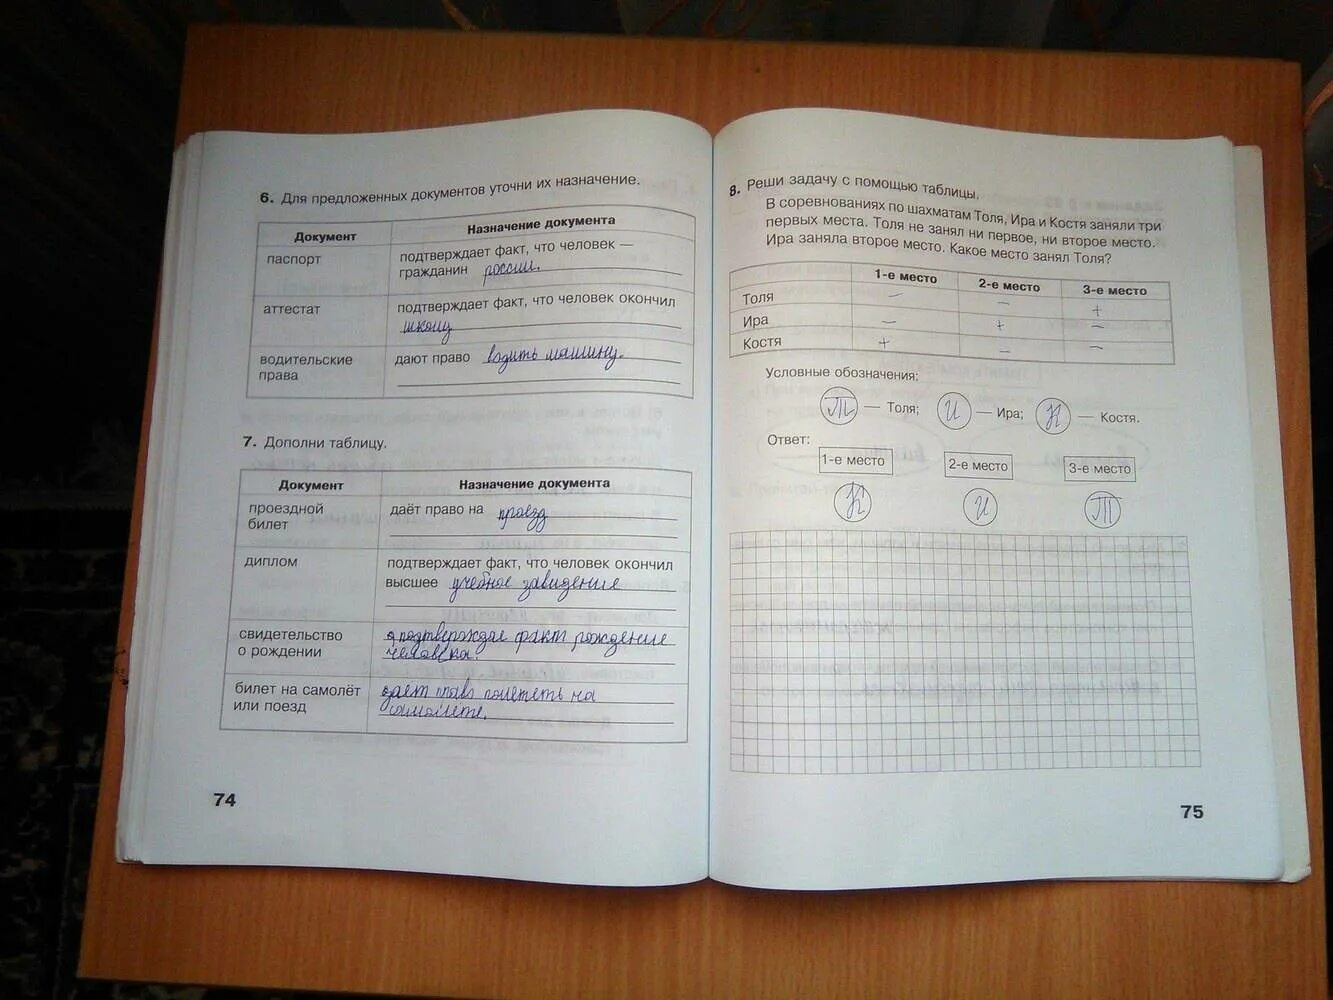 6. Для предложенных документов уточни их назначение.
Документ
Назначение документа
паспорт
подтверждает факт, что человек —
гражданин россии.
аттестат
подтверждает факт, что человек окончил
школу
водительские
права
дают право водить машину.
7. Дополни таблицу.
Документ
Назначение документа
проездной
билет
даёт право на проезд
диплом
подтверждает факт, что человек окончил
высшее учебное завидение
свидетельство
о рождении
подтверждае факт рождение
человека.
билет на самолёт
или поезд
даёт право полететь на
самолете.
74
8. Реши задачу с помощью таблицы.
В соревнованиях по шахматам Толя, Ира и Костя заняли три
первых места. Толя не занял ни первое, ни второе место.
Ира заняла второе место. Какое место занял Толя?
1-е место 2-е место 3-е место
Толя — — +
Ира — + —
Костя + — —
Условные обозначения:
Т — Толя; И — Ира; К — Костя.
Ответ:
1-е место 2-е место 3-е место
К И Т
75